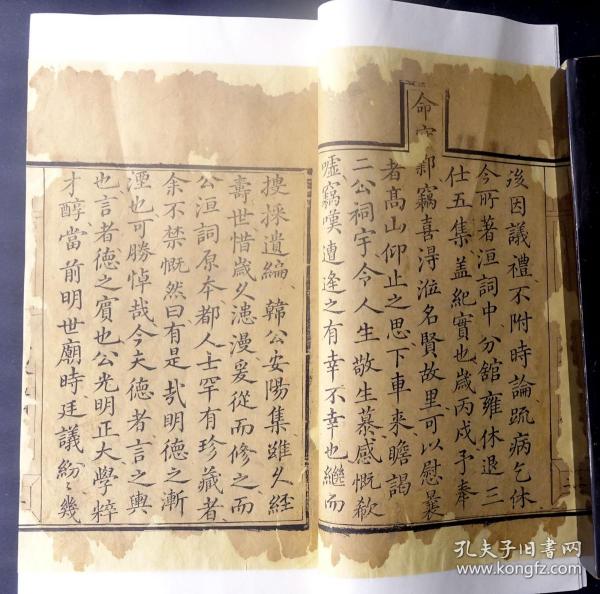 後因議禮不附時論疏病乞休
今所著洹詞中分舘雍休退三
仕五集盖紀實也歲丙戌予奉
命守鄴竊喜得涖名賢故里可以慰曩
者高山仰止之思下車来瞻謁
二公祠宇令人生敬生慕感慨欷
嘘竊嘆遭逢之有幸不幸也繼而
搜採遺編韓公安陽集雖久經
壽世惜歲久漶漫爰從而修之而
公洹詞原本都人士罕有珍藏者
余不禁慨然曰有是㢤明德之漸
湮也可勝悼哉今夫德者言之輿
也言者德之賓也公光明正大學粹
才醇當前明世廟時廷議紛〻幾
孔夫子旧书网
www.kongfz.com